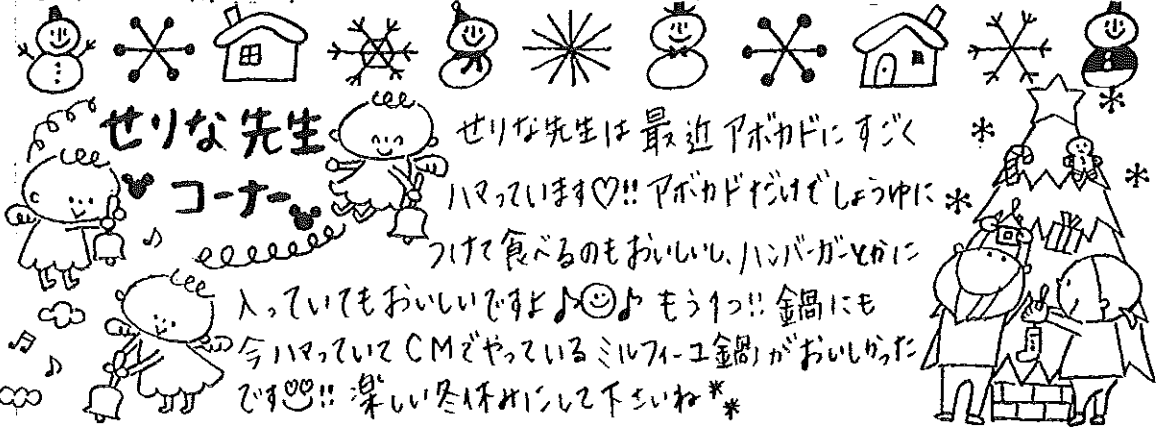 せりな先生
コーナー
せりな先生は最近アボカドにすごく
ハマっています♡!! アボカドだけでしょうゆに
つけて食べるのもおいしいし、ハンバーガーとかに
入っていてもおいしいですよ♪☺♪ もう1つ!! 鍋にも
今ハマっていてCMでやっているミルフィーユ鍋がおいしかった
です!! 楽しい冬休みにして下さいね**